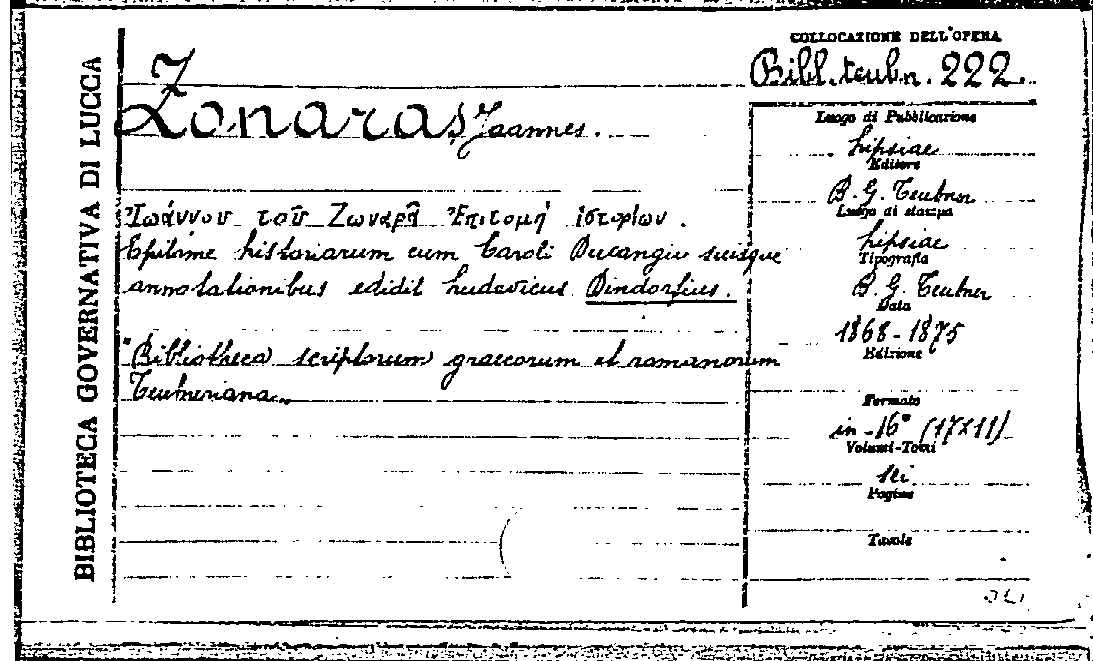 BIBLIOTECA GOVERNATIVA DI LUCCA
COLLOCAZIONE DELL'OPERA
Bibl. teubn. 222.
Z
Zonaras, Joannes.
Ἰωάννου τοῦ Ζωναρᾶ Ἐπιτομή ἱστορίων.
Epitome historiarum cum Caroli Ducangii suisque
annotationibus edidit Ludovicus Dindorfius.
"Bibliotheca scriptorum graecorum et romanorum
Teubneriana„
Luogo di Pubblicazione
Lipsiae
Editore
B. G. Teubner
Luogo di stampa
Lipsiae
Tipografia
B. G. Teubner
Data
1868-1875
Edizione
Formato
in-16° (17x11)
Volumi-Tomi
sei
Pagine
Tavole